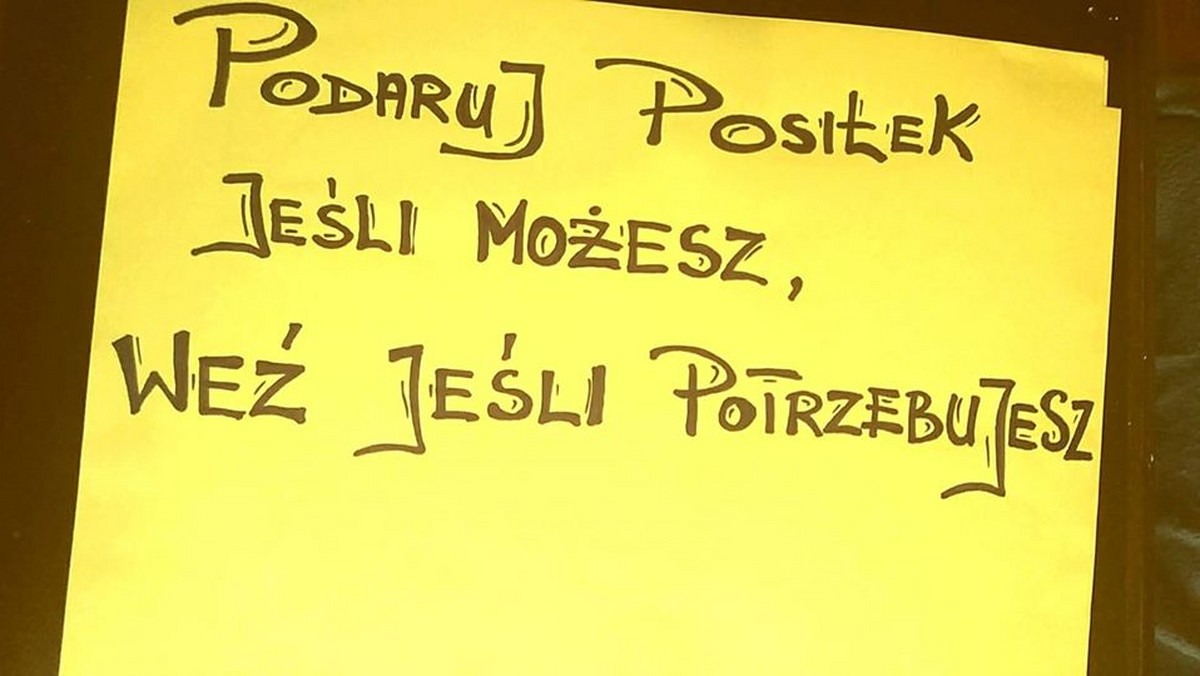 PODARUJ POSIŁEK
JEŚLI MOŻESZ,
WEŹ JEŚLI POTRZEBUJESZ